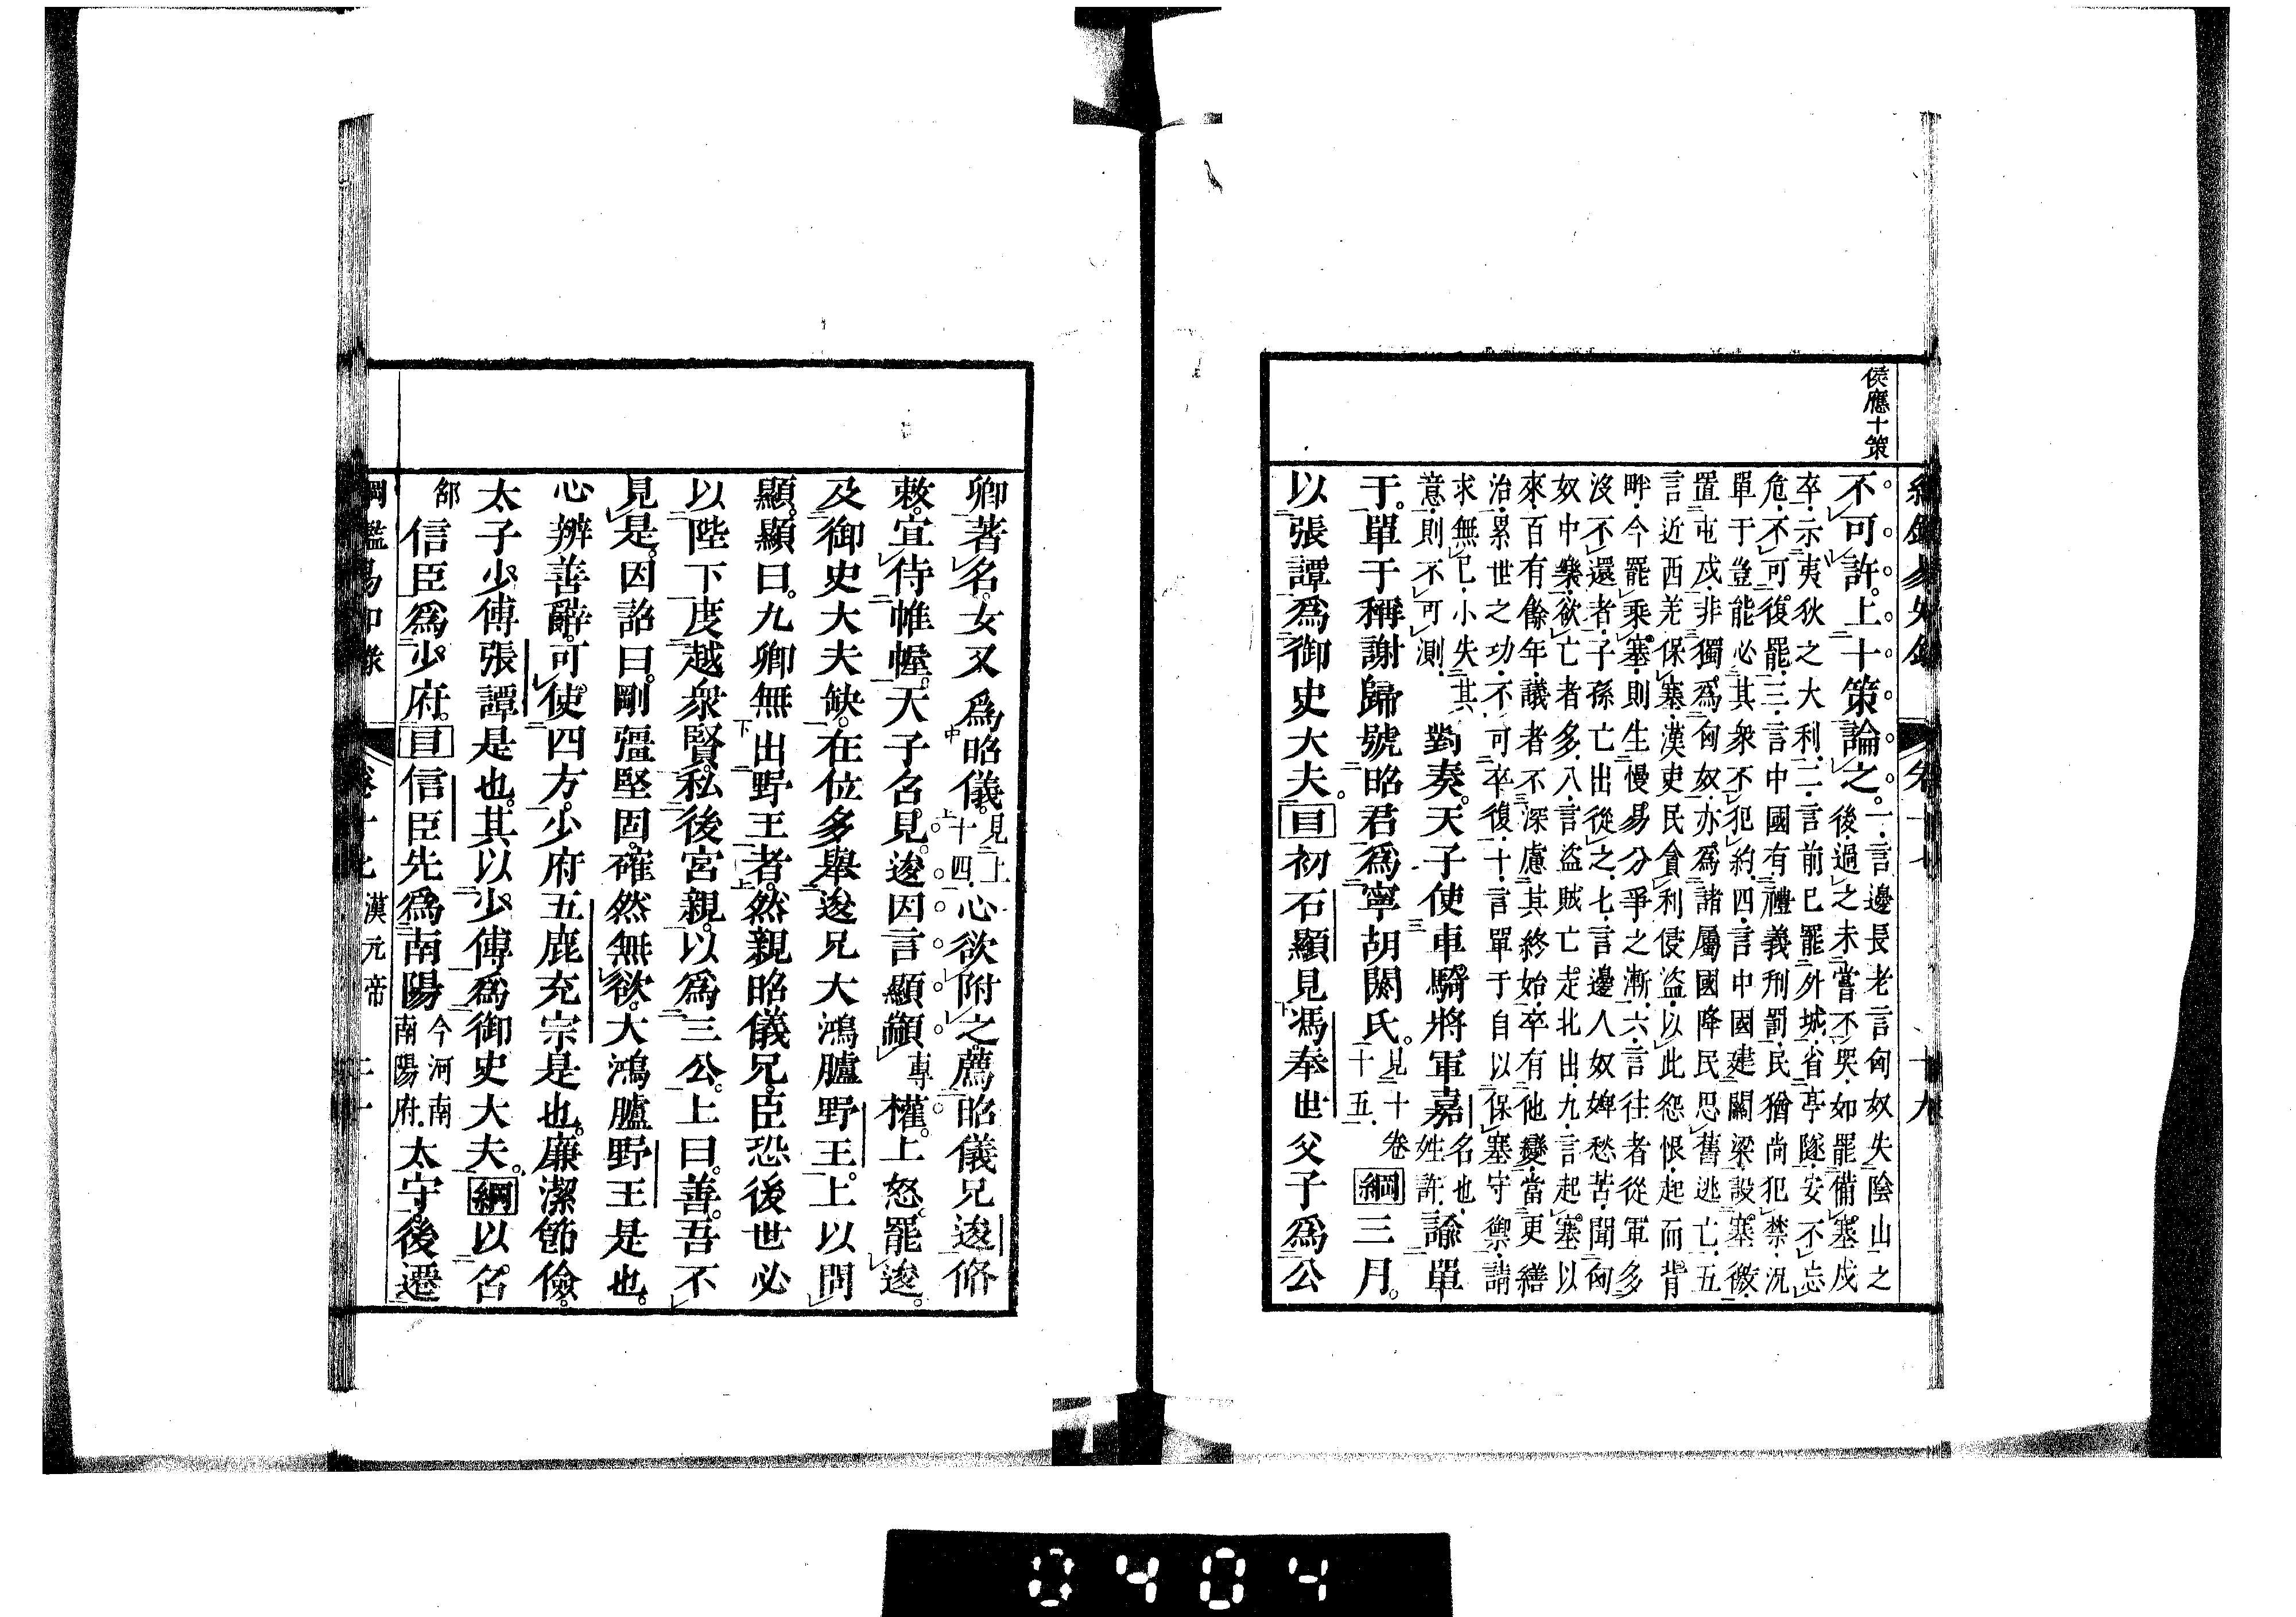 侯應十策
不可許。上十策論之。一言邊長老言匈奴失陰山之
後過之未嘗不哭如罷備塞戍
卒示夷狄之大利二言前已罷外城省亭隧安不忘
危不可復罷三言中國有禮義刑罰民猶尚犯禁況
單于豈能必其衆不犯約四言中國建關梁設塞徼
置屯戍非獨爲匈奴亦爲諸屬國降民思舊逃亡五
言近西羌保塞漢吏民貪利侵盜以此怨恨起而背
畔今罷乘塞則生慢易分爭之漸六言往者從軍多
沒不還者子孫亡出從之七言邊人奴婢愁苦聞匈
奴中樂欲亡者多八言盜賊亡走北出九言起塞以
來百有餘年議者不深慮其終始卒有他變當更繕
治累世之功不可卒復十言單于自以保塞守禦請
求無已小失其
意則不可測對奏。天子使車騎將軍嘉名也姓許諭單
于。單于稱謝歸號昭君爲寧胡閼氏。見十卷十五綱三月。
以張譚爲御史大夫。目初石顯見馮奉世父子爲公
卿著名。女又爲昭儀。見上十四心欲附之。薦昭儀兄逡脩
敕。宜侍帷幄。天子召見。逡因言顯顓專權。上怒。罷逡。
及御史大夫缺。在位多舉逡兄大鴻臚野王。上以問
顯。顯曰。九卿無出野王者。然親昭儀兄。臣恐後世必
以陛下度越衆賢。私後宮親。以爲三公。上曰。善。吾不
見是。因詔曰。剛彊堅固。確然無欲。大鴻臚野王是也。
心辨善辭。可使四方。少府五鹿充宗是也。廉潔節儉。
太子少傅張譚是也。其以少傅爲御史大夫。綱以召
邵信臣爲少府。目信臣先爲南陽今河南南陽府太守。後遷
卷十七 漢元帝 二十
0404